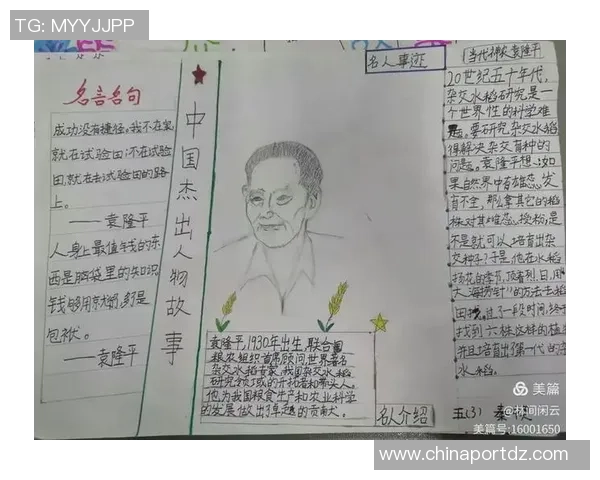 TG: MYYJJPP
名言名句
成功没有捷径。我不在家
就在试验田;不在试验
田,就在去试验田的路
上。
——袁隆平
人身上最值钱的东
西是脑袋里的知识
钱够用就
包袱。
——袁隆平
中国杰出人物故事
名人事迹
袁隆平,1930年出生,联合国
粮农组织首席顾问,世界著名
杂交水稻专家,我国杂交水稻
研究领域的开拓者和带头人。
他为我国粮食生产和农业科学
的发展做出了卓越的贡献大。
名人介绍
当代神农袁隆平
20世纪五十年代,
杂交水稻研究是一
个世界性的科学难
题。要研究杂交水稻
得解决杂交育种的
问题。袁隆平想:如
果自然界中有雄蕊发
育不全,那么拿其它的稻
株对其雌蕊授粉,是
不是就可以培育出杂
交种子?于是他在水稻
扬花的季节,顶着烈日,用
大海捞针"的方法去稻
田找。过了一段时间,终于
找到六株这样的植
并且培育出了第一代的杂
水稻。
五(3)
美篇
@林间闲云
美篇号:16001650
www.chinaportdz.com